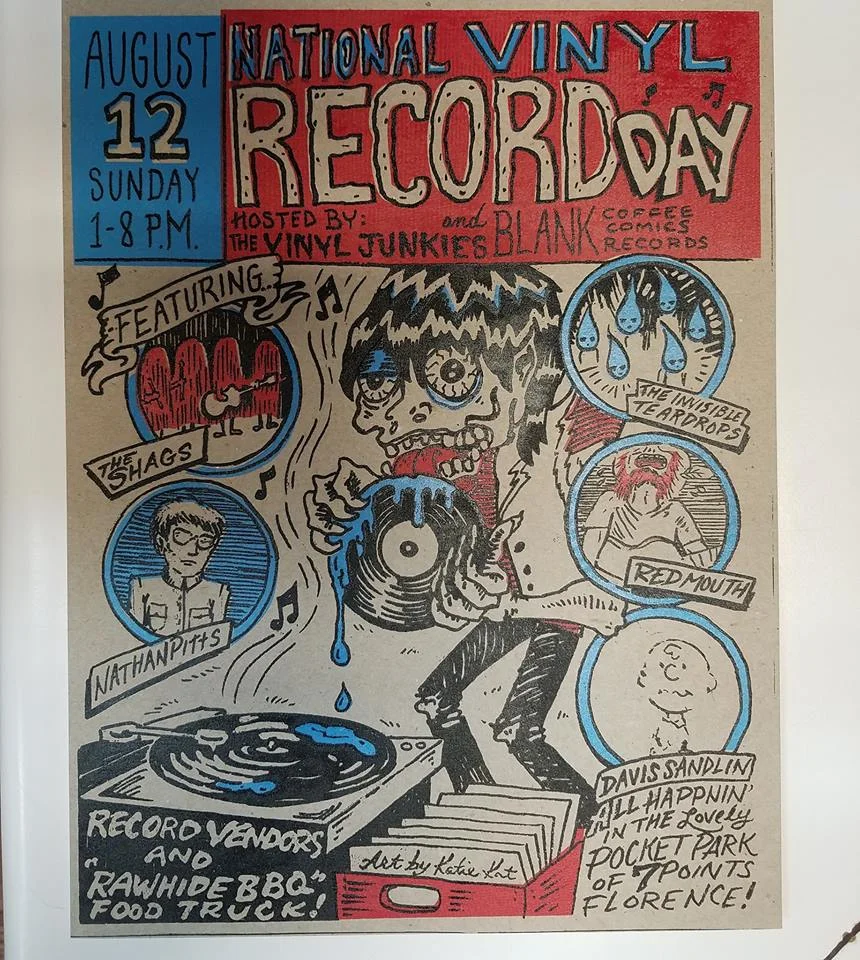 AUGUST
12
SUNDAY
1-8 P.M.
NATIONAL VINYL
RECORD DAY
HOSTED BY:
THE VINYL JUNKIES and BLANK COFFEE
COMICS
RECORDS
FEATURING...
THE SHAGS
NATHAN PITTS
THE INVISIBLE
TEARDROPS
RED MOUTH
DAVIS SANDLIN
ALL HAPPNIN'
IN THE Lovely
POCKET PARK
OF 7 POINTS
FLORENCE!
RECORD VENDORS
AND
"RAWHIDE BBQ"
FOOD TRUCK!
Art by Katie Kat